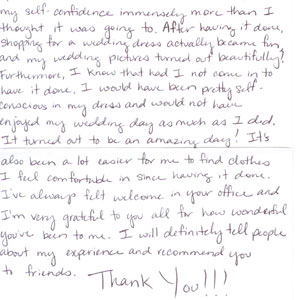 my self-confidence immensely more than I
thought it was going to. After having it done,
shopping for a wedding dress actually became fun
and my wedding pictures turned out beautifully!
Furthermore, I know that had I not come in to
have it done, I would have been pretty self-
conscious in my dress and would not have
enjoyed my wedding day as much as I did.
It turned out to be an amazing day! It's
also been a lot easier for me to find clothes
I feel comfortable in since having it done.
I've always felt welcome in your office and
I'm very grateful to you all for how wonderful
you've been to me. I will definitely tell people
about my experience and recommend you
to friends.
Thank You!!!